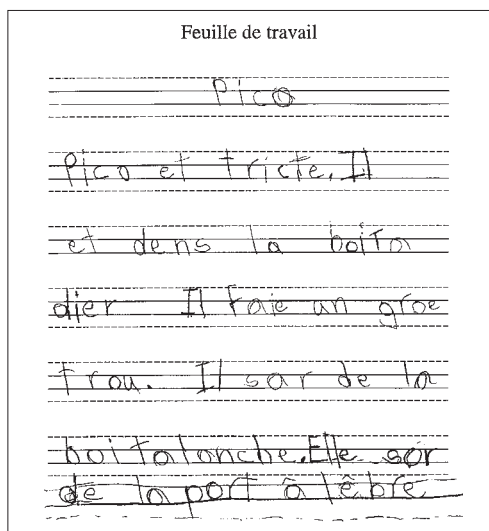 Feuille de travail
Pico
Pico et tricte. Il
et dens la boita
dier Il faie un groe
trou. Il sar de la
boitalonche. Elle sor
de la port â lêbre